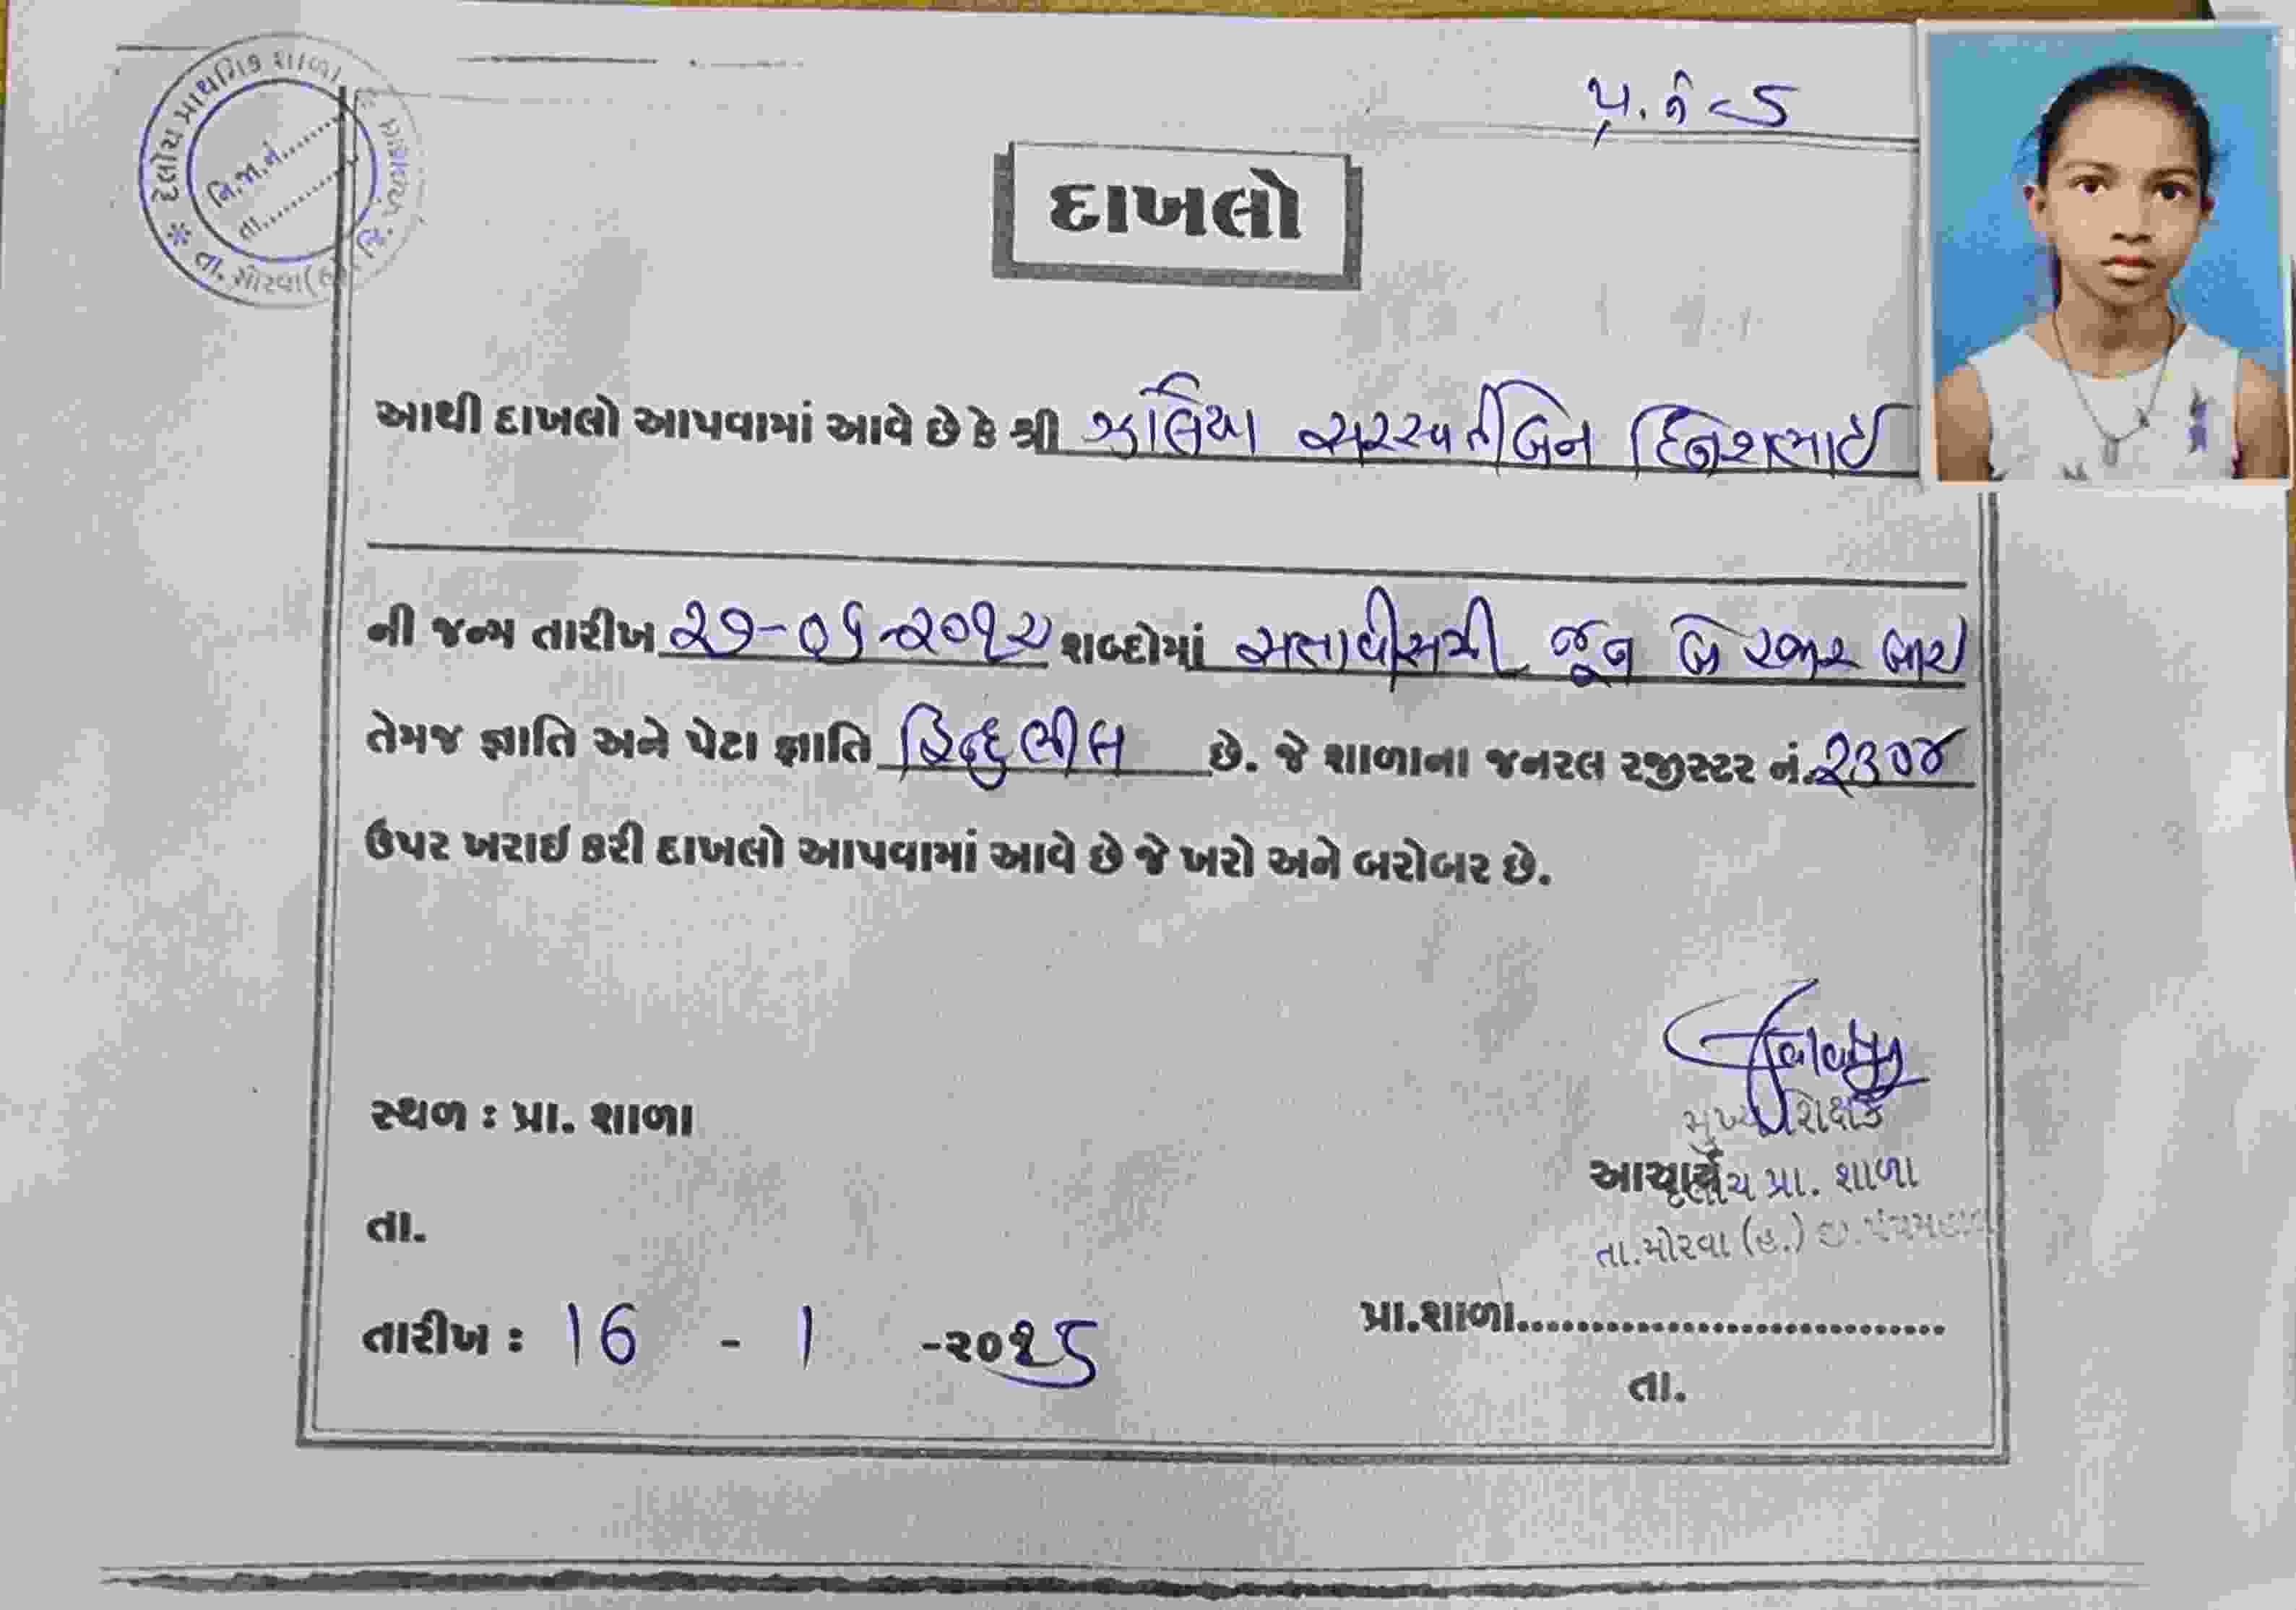 દેલોચ પ્રાથમિક શાળા
નિ.જા.નં........
તા............
તા. મોરવા(હ)
પ્ર.નં-5
દાખલો
આથી દાખલો આપવામાં આવે છે કે શ્રી ઝાલિયા સરસ્વતીબેન દિનેશભાઈ
ની જન્મ તારીખ ૨૭-૦૬-૨૦૧૨ શબ્દોમાં સત્તાવીસમી જૂન બે હજાર બાર
તેમજ જ્ઞાતિ અને પેટા જ્ઞાતિ હિન્દુ ભીલ છે. જે શાળાના જનરલ રજીસ્ટર નં. ૨૩૦૪
ઉપર ખરાઇ કરી દાખલો આપવામાં આવે છે જે ખરો અને બરોબર છે.
મુખ્ય શિક્ષક
સ્થળ : પ્રા. શાળા
આચાર્ય
દેલોચ પ્રા. શાળા
તા.
તા.મોરવા (હ.) જી.પંચમહાલ
પ્રા.શાળા................................
તારીખ : 16 - 1 -૨૦૨5
તા.